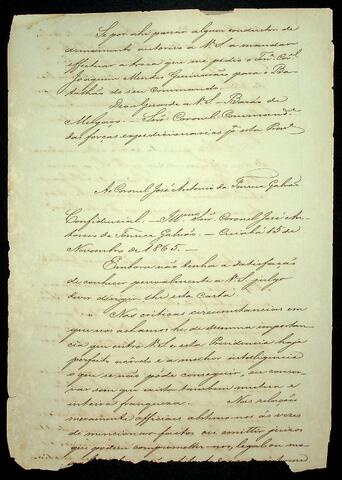 Se por ahi passão algum conductor de
armamento autoriso a V.S. a mandar
effectuar a troca que me pedio o Tne. Cel.
Joaquim Mendes Guimarães para o Ba-
talhão do seu Commando.
Deos Guarde a V.S. – Barão de
Melgaço. – Snr. Coronel Command.e
das forças expedicionarias já esta Prov.a
Ao Coronel José Antonio da Fonseca Galvão
Confidencial – Illmo. Snr. Coronel José An-
tonio da Fonseca Galvão. – Cuiabá 15 de
Novembro de 1865. –
Embora não tenha a satisfação
de conhecer pessoalmente a V.S. julgo
dever dirigir lhe esta Carta
Nas criticas circunstancias em
que nos achamos he de summa importan-
cia que entre V.S. e esta Presidencia haja
perfeito accôrdo e a melhor intelligencia
o que se não póde conseguir, ou conser-
var sem que exista tambem mutua e
inteira franqueza. – Nas relações
meramente officiaes abstemo-nos ás vezes
de mencionar factos ou emittir juizos
que podem comprometter-nos, legal ou mo-